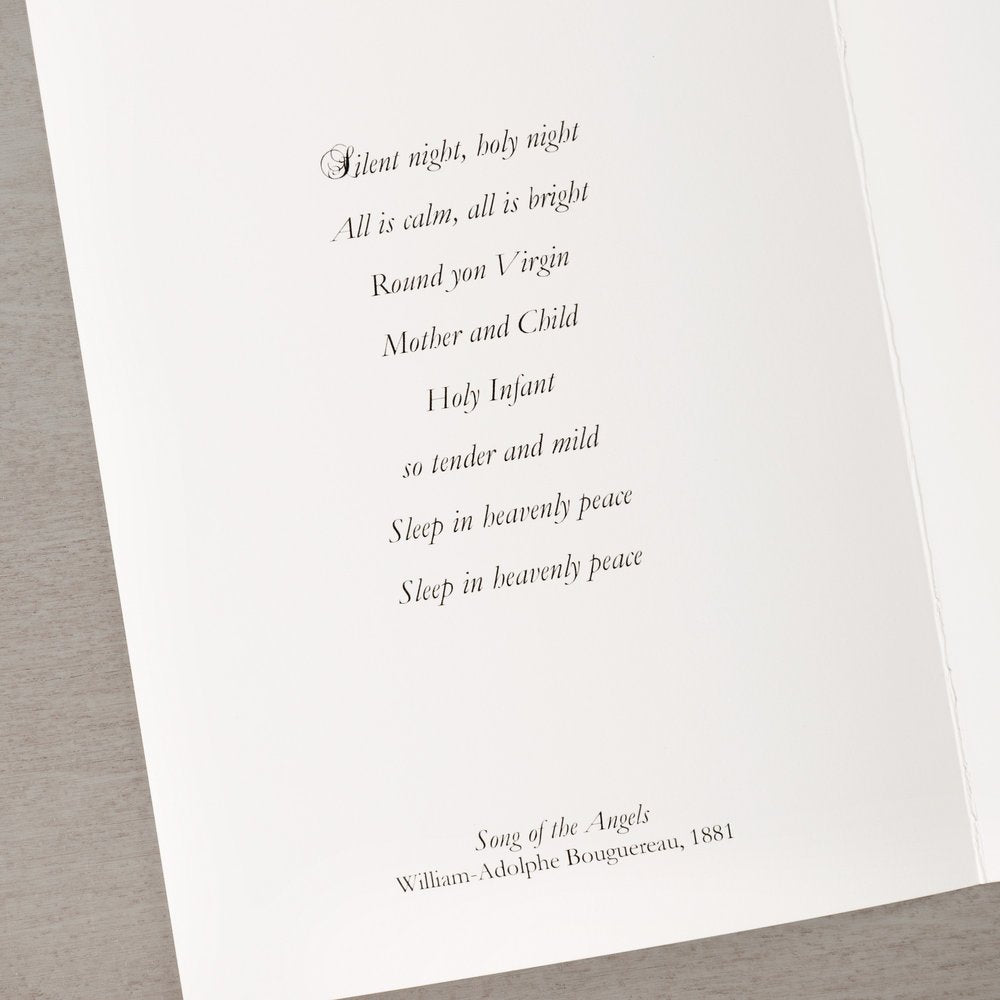 Silent night, holy night
All is calm, all is bright
Round yon Virgin
Mother and Child
Holy Infant
so tender and mild
Sleep in heavenly peace
Sleep in heavenly peace
Song of the Angels
William-Adolphe Bouguereau, 1881